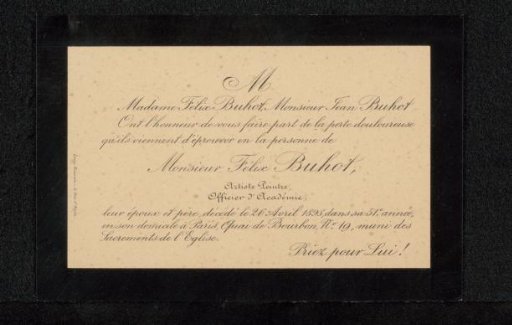 M.
Madame Félix Buhot, Monsieur Jean Buhot
Ont l'honneur de vous faire part de la perte douloureuse
qu'ils viennent d'éprouver en la personne de
Monsieur Félix Buhot,
Artiste Peintre,
Officier d'Académie,
leur époux et père, décédé le 26 Avril 1898, dans sa 51e année,
en son domicile à Paris, Quai de Bourbon, No 19, muni des
Sacrements de l'Eglise.
Priez pour Lui!